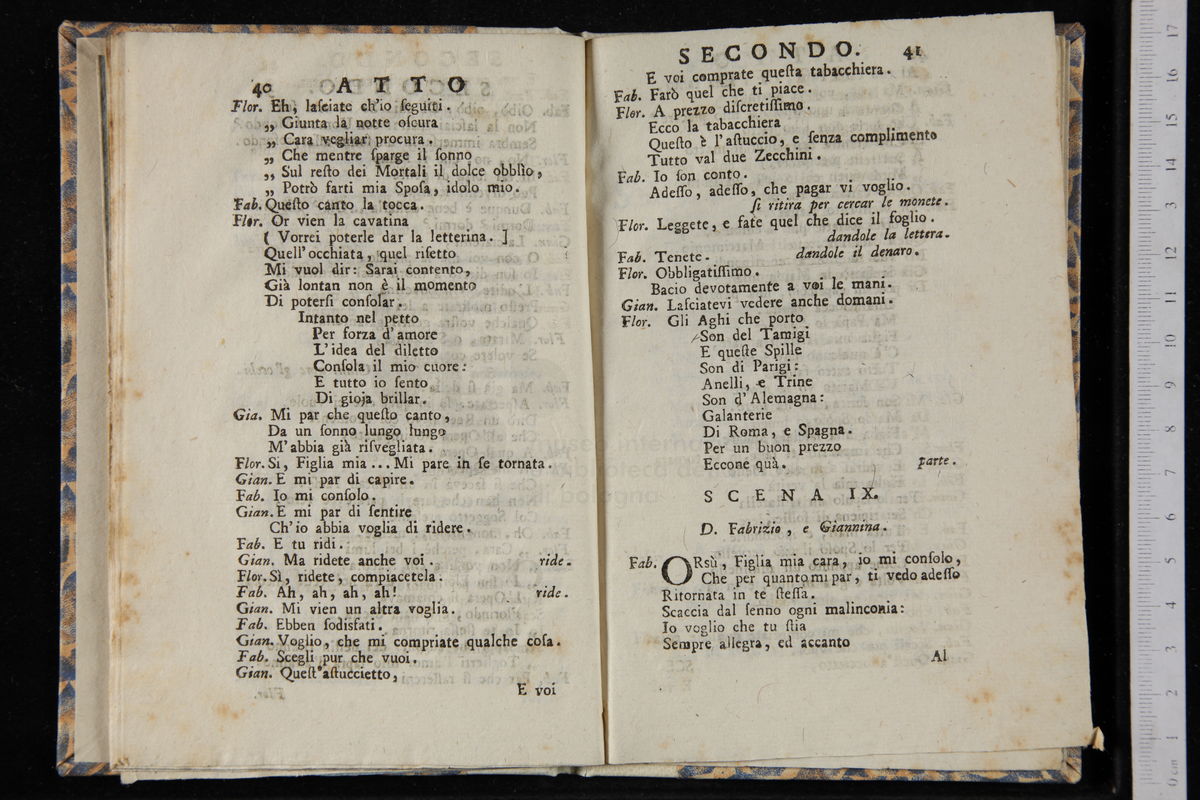 40 ATTO
Flor. Eh, laſciate ch'io ſeguiti.
„ Giunta la notte oſcura
„ Cara vegliar procura.
„ Che mentre ſparge il ſonno
„ Sul reſto dei Mortali il dolce obblìo,
„ Potrò farti mia Spoſa, idolo mio.
Fab. Queſto canto la tocca.
Flor. Or vien la cavatina
( Vorrei poterle dar la letterina. ]
Quell'occhiata, quel riſetto
Mi vuol dir: Sarai contento,
Già lontan non è il momento
Di poterſi conſolar.
Intanto nel petto
Per forza d'amore
L'idea del diletto
Conſola il mio cuore:
E tutto io ſento
Di gioja brillar.
Gia. Mi par che queſto canto,
Da un ſonno lungo lungo
M'abbia già riſvegliata.
Flor. Sì, Figlia mia... Mi pare in ſe tornata.
Gian. E mi par di capire.
Fab. Io mi conſolo.
Gian. E mi par di ſentire
Ch'io abbia voglia di ridere.
Fab. E tu ridi.
Gian. Ma ridete anche voi. ride.
Flor. Sì, ridete, compiacetela.
Fab. Ah, ah, ah, ah! ride.
Gian. Mi vien un altra voglia.
Fab. Ebben ſodisfati.
Gian. Voglio, che mi compriate qualche coſa.
Fab. Scegli pur che vuoi.
Gian. Queſt'aſtuccietto,
E voi
SECONDO. 41
E voi comprate queſta tabacchiera.
Fab. Farò quel che ti piace.
Flor. A prezzo diſcretiſſimo.
Ecco la tabacchiera
Queſto è l'aſtuccio, e ſenza complimento
Tutto val due Zecchini.
Fab. Io ſon conto.
Adeſſo, adeſſo, che pagar vi voglio.
ſi ritira per cercar le monete.
Flor. Leggete, e fate quel che dice il foglio.
dandole la lettera.
Fab. Tenete. dandole il denaro.
Flor. Obbligatiſſimo.
Bacio devotamente a voi le mani.
Gian. Laſciatevi vedere anche domani.
Flor. Gli Aghi che porto
Son del Tamigi
E queſte Spille
Son di Parigi:
Anelli, e Trine
Son d'Alemagna:
Galanterie
Di Roma, e Spagna.
Per un buon prezzo
Eccone quà. parte.
SCENA IX.
D. Fabrizio, e Giannina.
Fab. ORsù, Figlia mia cara, io mi conſolo,
Che per quanto mi par, ti vedo adeſſo
Ritornata in te ſteſſa.
Scaccia dal ſenno ogni malinconia:
Io voglio che tu ſtia
Sempre allegra, ed accanto
Al